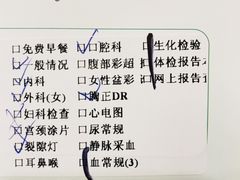 □免费早餐 □口腔科 □生化检验
□一般情况 □腹部彩超 □体检报告
□内科 □女性盆彩 □网上报告
□外科(女) □胸正DR
□妇科检查 □心电图
□宫颈涂片 □尿常规
□裂隙灯 □静脉采血
□耳鼻喉 □血常规(3)